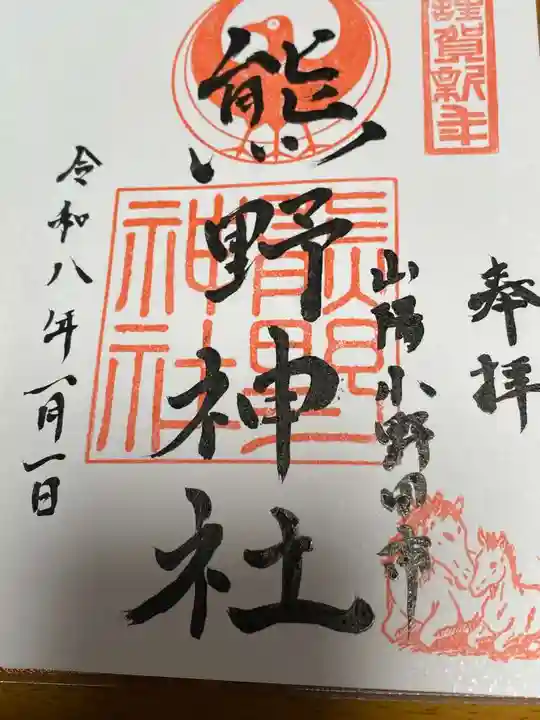 謹賀新年
奉拝
山陽小野田市
熊野神社
熊野神社
令和八年一月一日